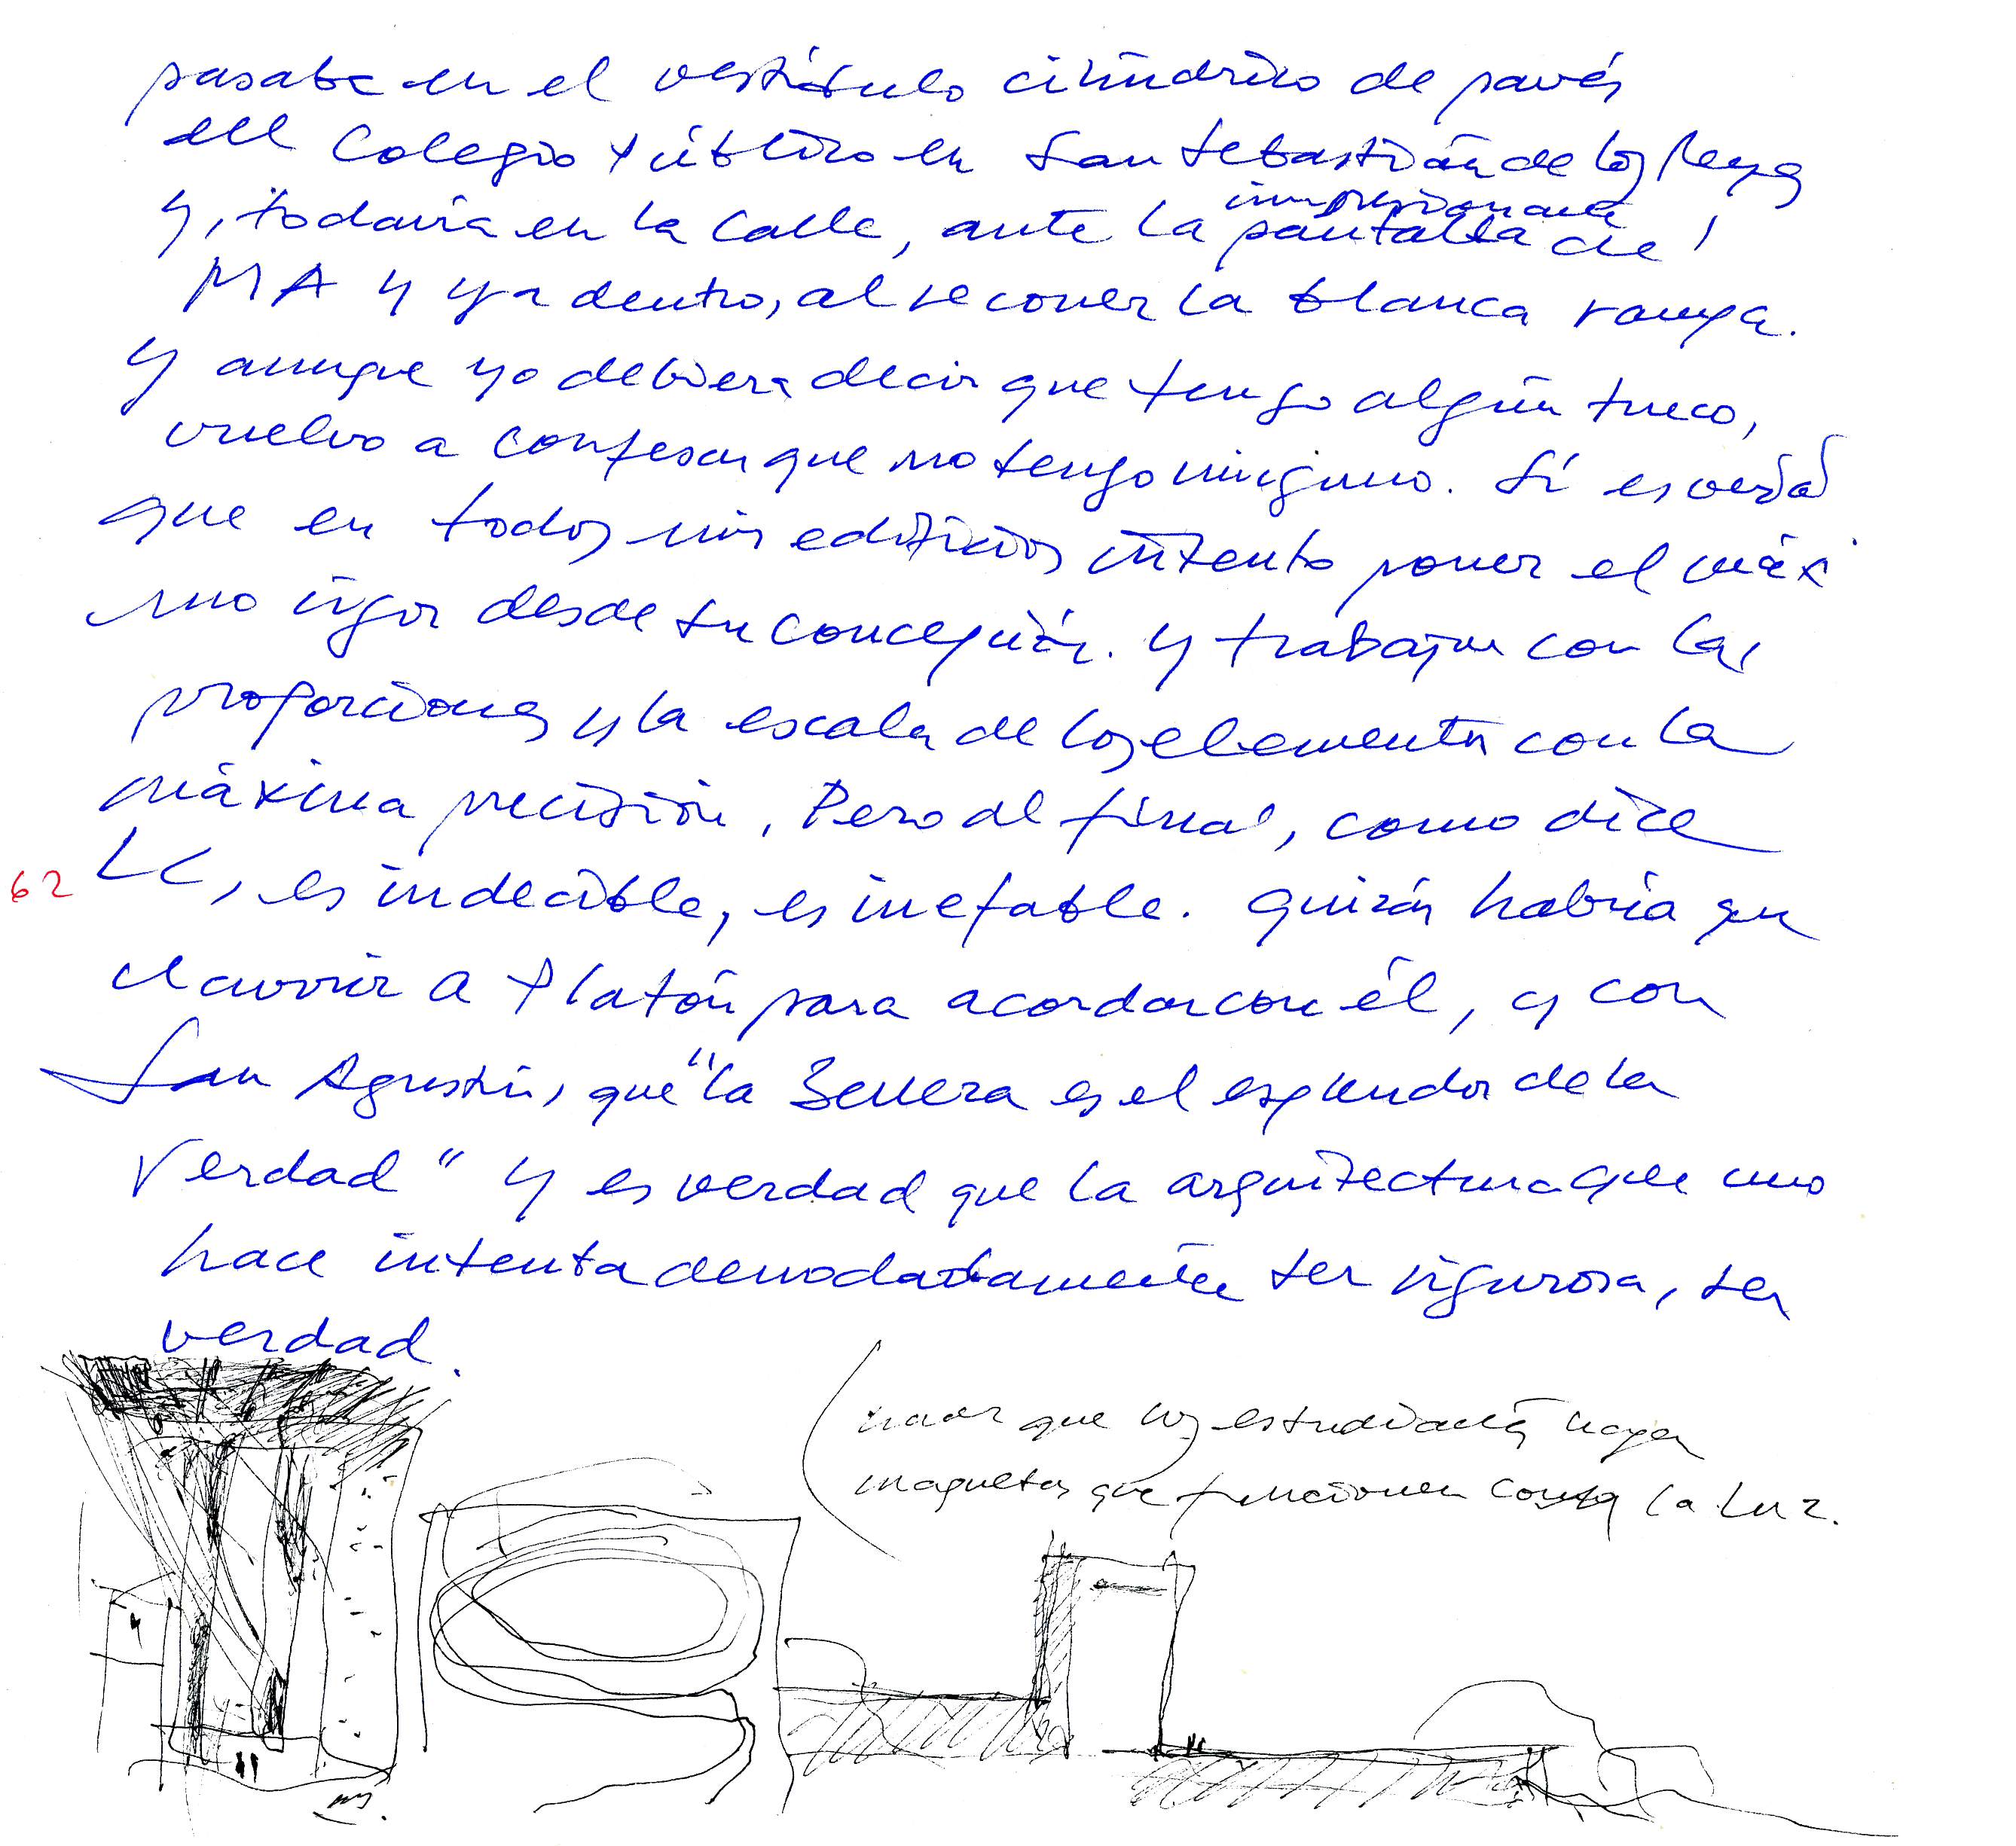 pasaba en el vestíbulo cilíndrico de pavés
del Colegio Público en San Sebastián de los Reyes
impresionante
y, todavía en la calle, ante la pantalla de
MA y ya dentro, al recorrer la blanca rampa.
Y aunque yo debiera decir que tengo algún truco,
vuelvo a confesar que no tengo ninguno. Sí es verdad
que en todos mis edificios intento poner el máxi
mo rigor desde su concepción. Y trabajar con las
proporciones y la escala de los elementos con la
máxima precisión. Pero al final, como dice
62 LC, es indecible, es inefable. Quizás habría que
recurrir a Platón para acordar con él, y con
San Agustín, que "la Belleza es el esplendor de la
Verdad" y es verdad que la arquitectura que uno
hace intenta denodadamente ser rigurosa, ser
verdad.
hacer que los estudiantes hagan
maquetas que funcionen con la luz.